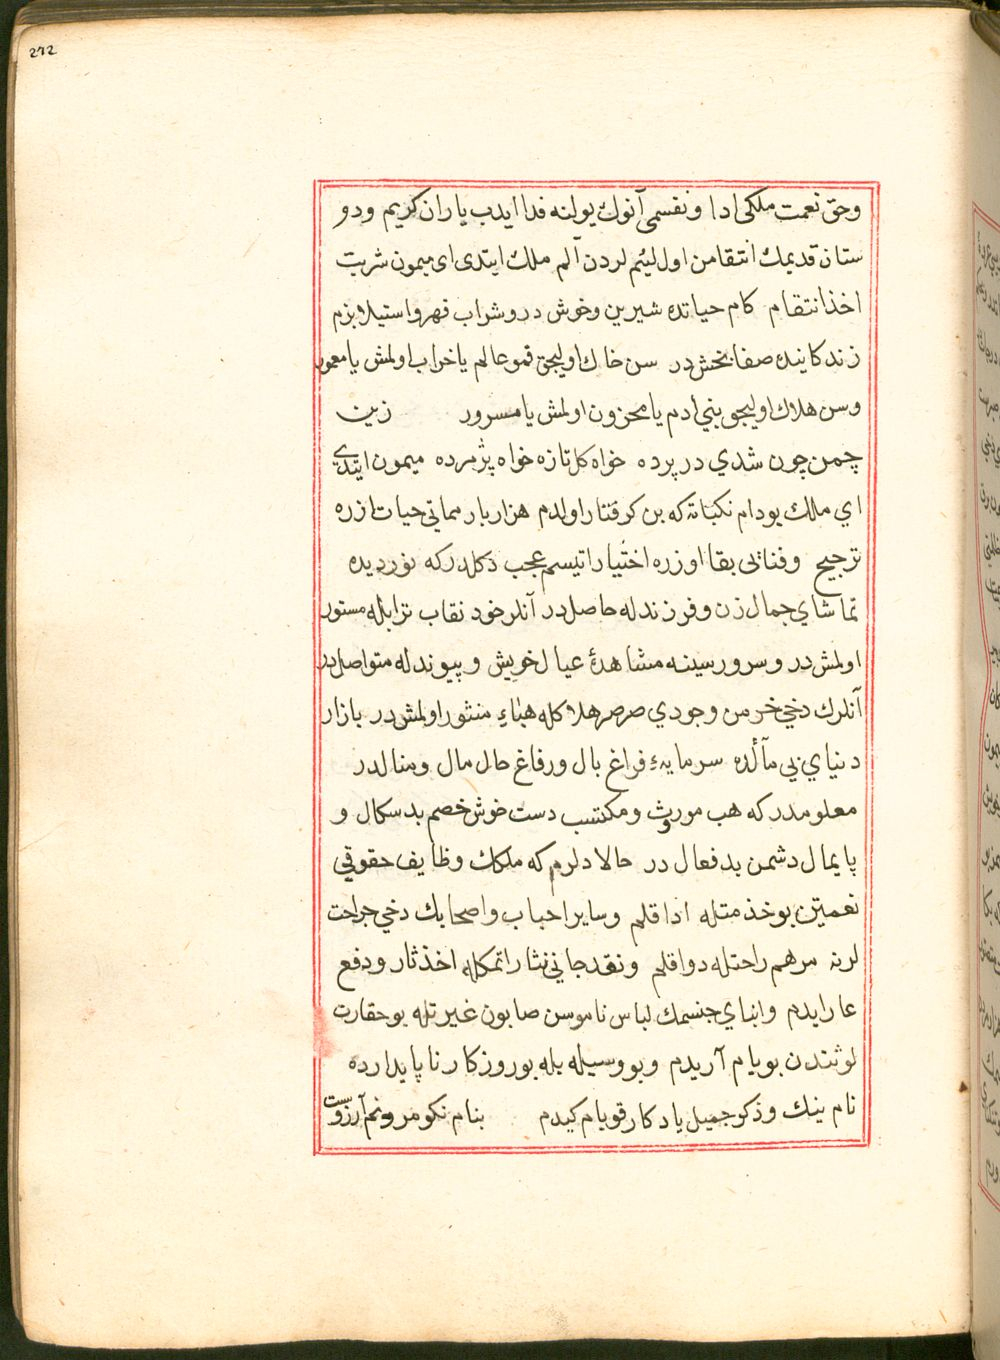 272
وحق نعمت ملكی ادا و نفسمی آنوك یولنه فدا ایدب یاران كریم و دو
ستان قدیمك انتقامن اول لئیم لردن آلم ملك ایتدی ای میمون شربت
اخذ انتقام كام حیاتده شیرین و خوش در و شراب قهر و استیلا بزم
زندكانیده صفا بخش در سن خاك اولیجق قمو عالم یا خراب اولمش یا معمور
وسن هلاك اولیجق بني ادم یا محزون اولمش یا مسرور زین
چمن چون شدي در پرده خواه كل تازه خواه پژمرده میمون ایتدي
اي ملك بودام نكباته كه بن كرفتار اولدم هزار بار مماتي حیات ازره
ترجیح و فنائی بقا اوزره اختیار اتیسم عجب دكلدر كه نور دیده
تماشاي جمال زن و فرزندله حاصل در آنلر خود نقاب ترابله مستور
اولمش در و سرور سینه مشاهدهٔ عیال خویش و پیوندله متواصل در
آنلرك دخي خرمن وجودي صرصر هلاكله هباءِ منثور اولمش در بازار
دنیاي بي مآلده سرمایهٔ فراغ بال و رفاغ حال مال و منالدر
معلومدر كه هب موروث و مكتسب دست خوش خصم بد سكال و
پایمال دشمن بد فعال در حالا دلرم كه ملكك وظایف حقوقي
نعمتین بو خذمتله ادا قلم وسایر احباب و اصحابك دخي جراحت
لرنه مرهم راحتله دوا قلم و نقد جاني نثار اتمكله اخذ ثار و دفع
عار ایدم و ابناي جنسمك لباس ناموسن صابون غیرتله بو حقارت
لوثندن بویام آریدم وبو وسیله یله بو روزكار نا پایدارده
نام نیك و ذكر جمیل یادكار قویام كیدم بنام نكو مردنم آرزوست